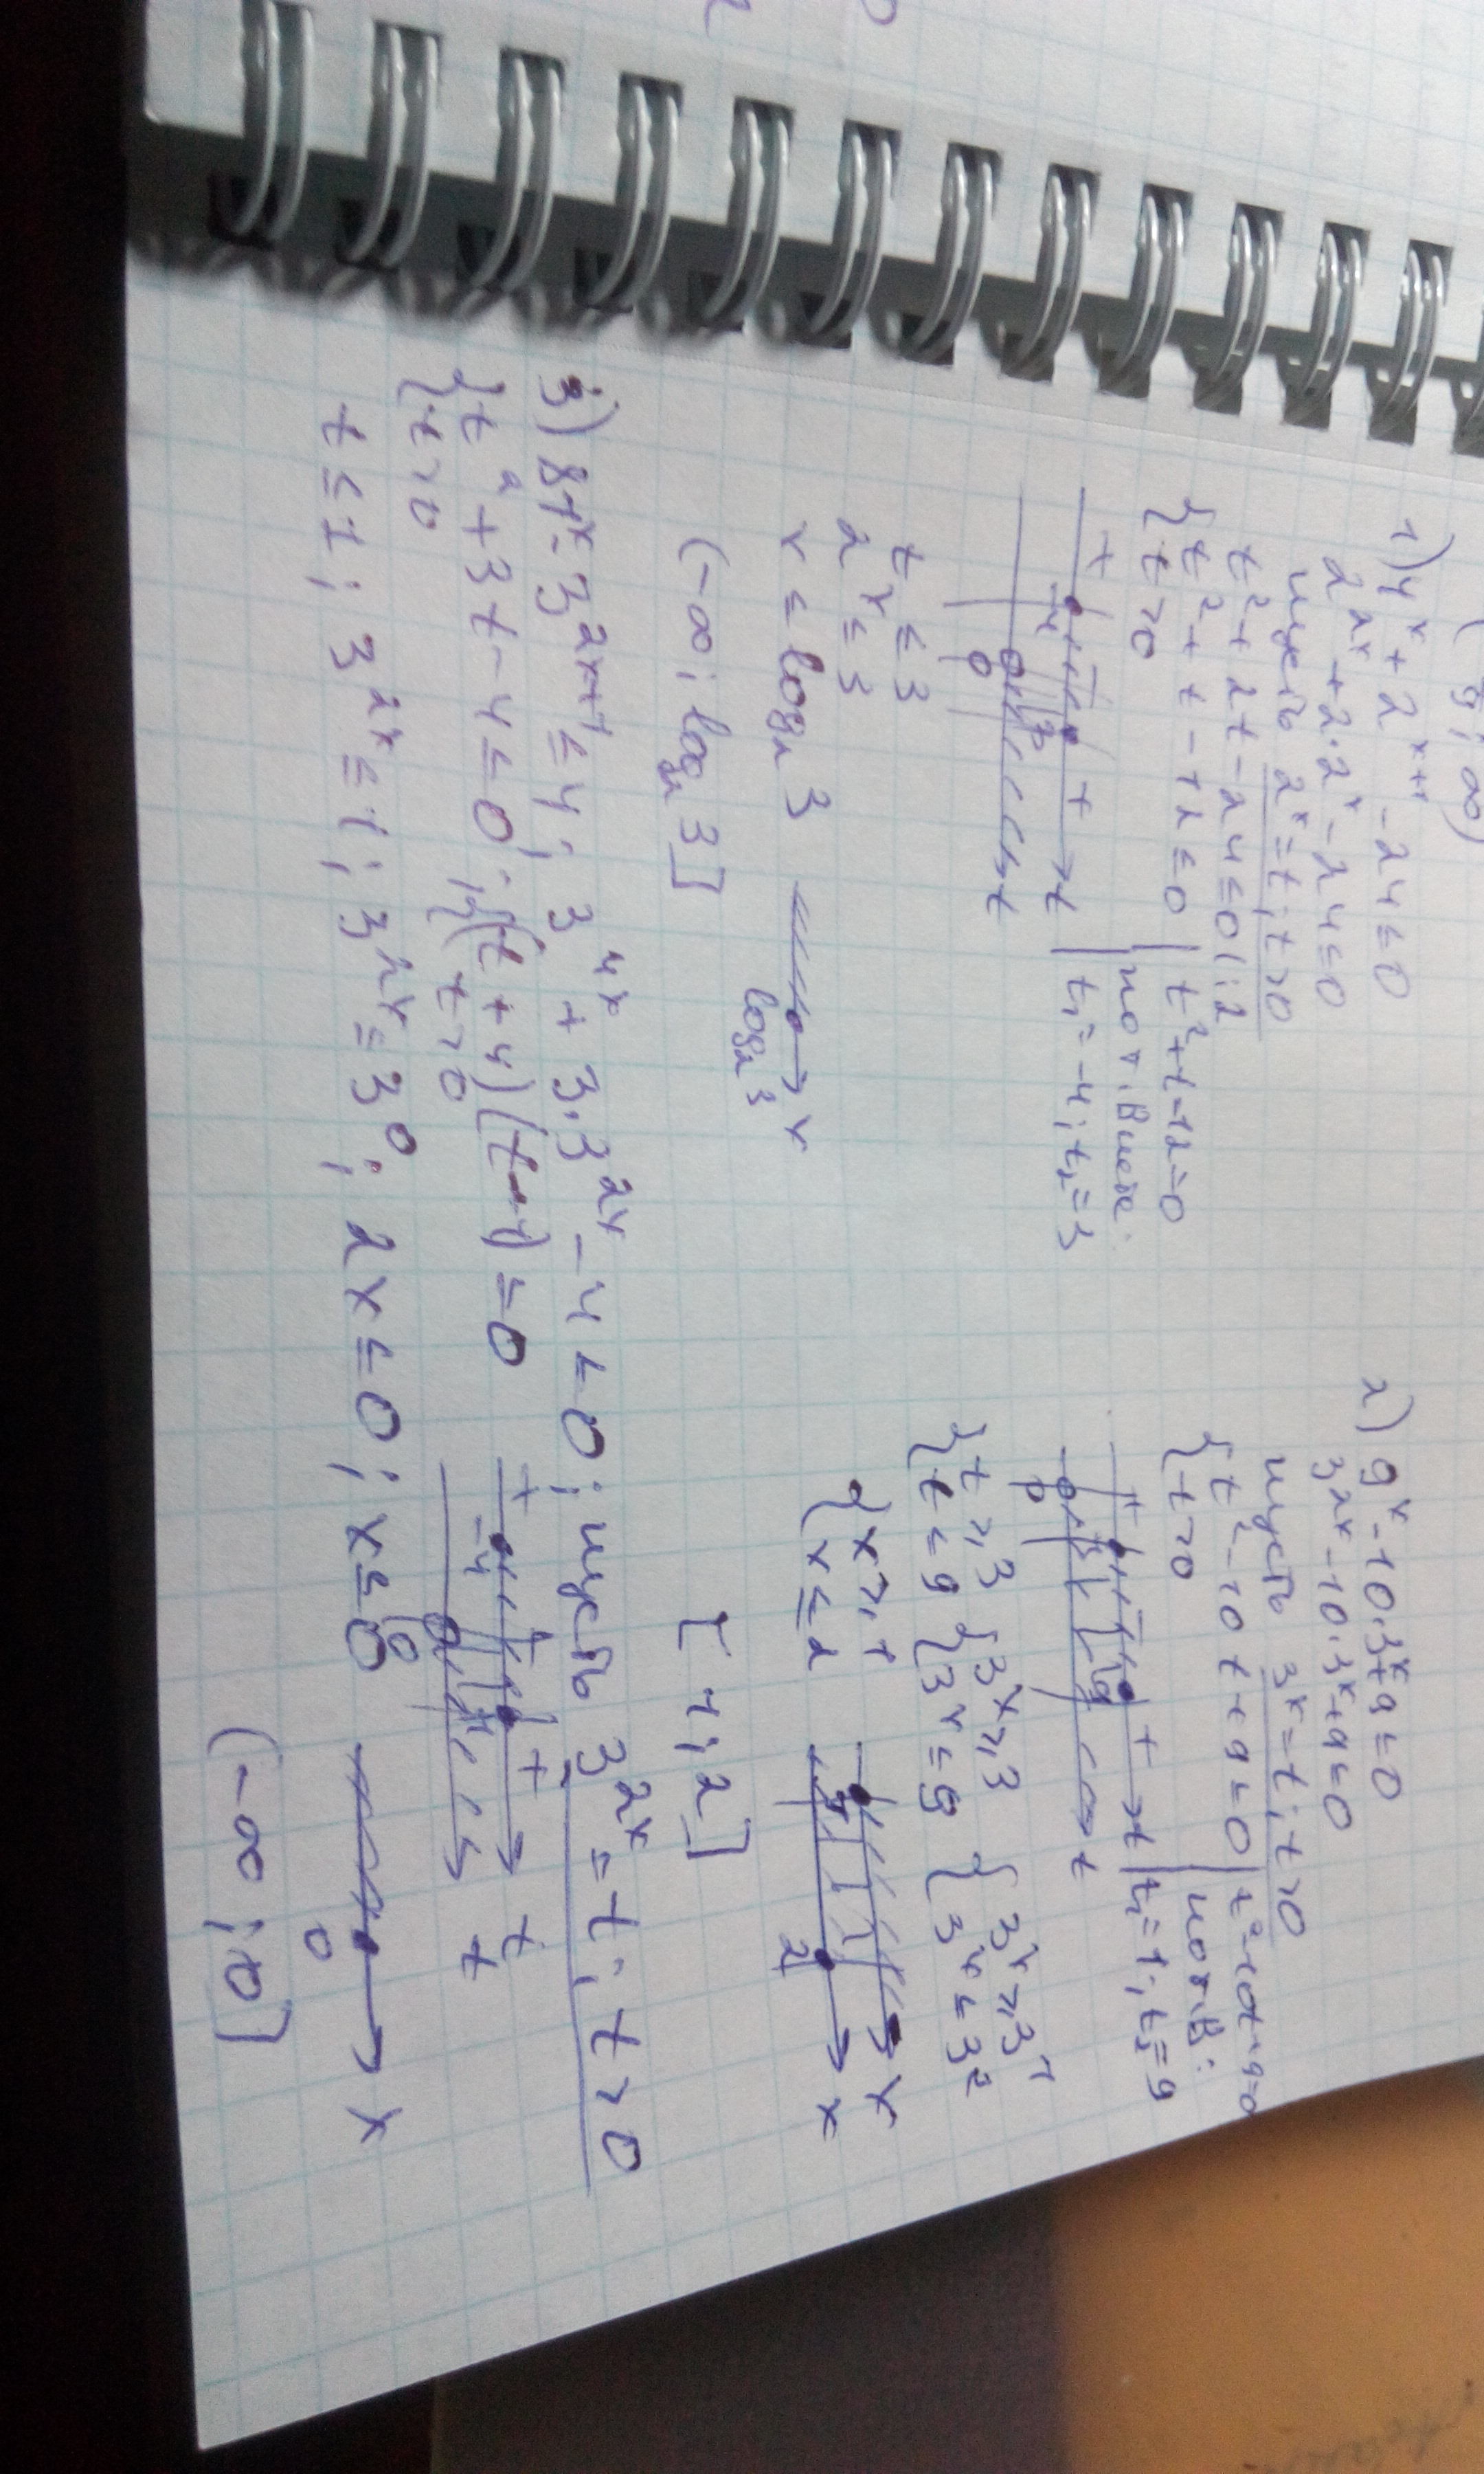 1) 4ˣ + 2ˣ⁺¹ - 24 ≤ 0
2²ˣ + 2·2ˣ - 24 ≤ 0
пусть 2ˣ = t; t > 0
t² + 2t - 24 ≤ 0 |:2
{t² + t - 12 ≤ 0
{t > 0
t² + t - 12 = 0
по т. Виета:
t₁ = -4; t₂ = 3
+ - + t
-4 3
0 t
t ≤ 3
2ˣ ≤ 3
x ≤ log₂ 3
log₂ 3 x
(-∞; log₂ 3]
2) 9ˣ - 10·3ˣ + 9 ≤ 0
3²ˣ - 10·3ˣ + 9 ≤ 0
пусть 3ˣ = t; t > 0
{t² - 10t + 9 ≤ 0
{t > 0
t² - 10t + 9 = 0
по т. В:
t₁ = 1; t₂ = 9
+ - + t
0 9 t
{t ≥ 3 {3ˣ ≥ 3 {3ˣ ≥ 3¹
{t ≤ 9 {3ˣ ≤ 9 {3ˣ ≤ 3²
{x ≥ 1
{x ≤ 2
1 x
2 x
[1; 2]
3) 81ˣ - 3²ˣ⁺¹ ≤ 4; 3⁴ˣ + 3·3²ˣ - 4 ≤ 0; пусть 3²ˣ = t; t > 0
{t² + 3t - 4 ≤ 0; {(t + 4)(t - 1) ≤ 0
{t > 0 {t > 0
+ - + t
-4 1
0 t
t ≤ 1; 3²ˣ ≤ 1; 3²ˣ ≤ 3⁰; 2x ≤ 0; x ≤ 0
0 x
(-∞; 0]